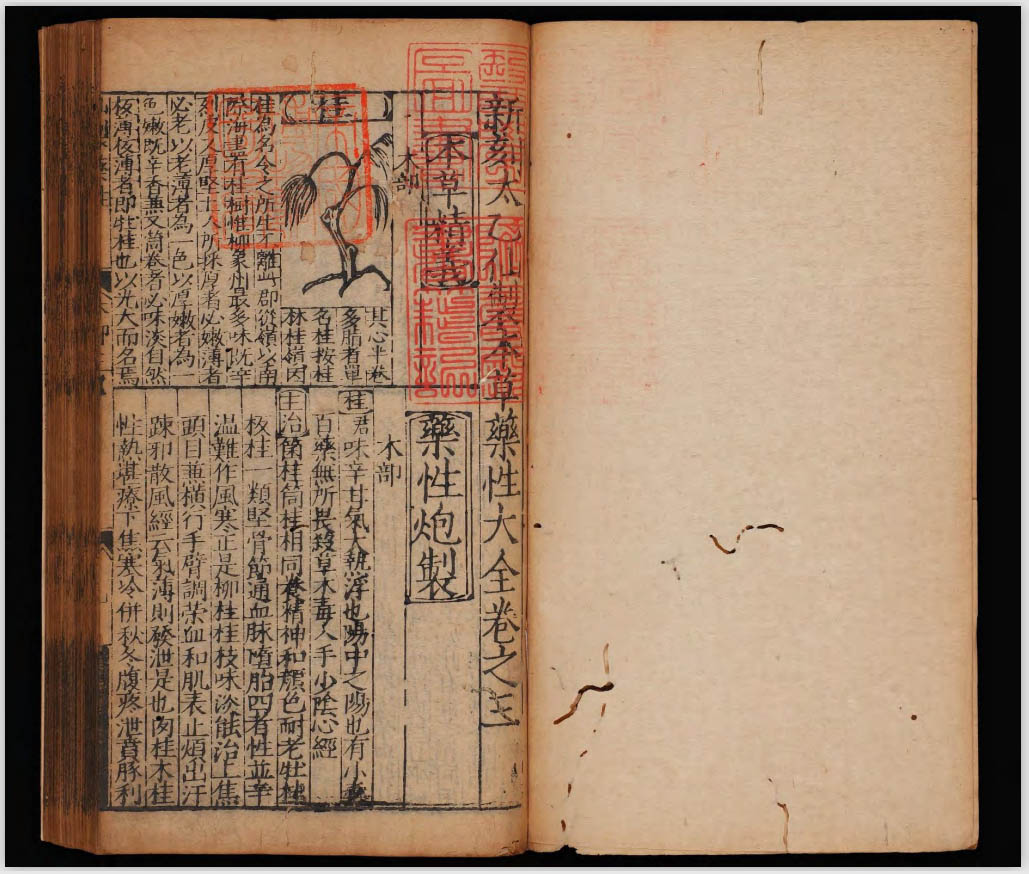 新刻太乙仙製本草藥性大全卷之
本草精義
木部
桂
其心半卷
多脂者單
名桂按桂
林桂嶺因
桂為名今之所生不離此郡從嶺以南
際海盡有桂樹惟柳象州最多味既辛
烈皮又厚堅土人所採厚者必嫩薄者
必老以老薄者為一色以厚嫩者為一
色嫩既辛香兼又筒卷者必味淡自然
板薄板薄者即牡桂也以光大而名焉
藥性炮製
木部
桂君味辛甘氣大熱浮也陽中之陽也有小毒
百藥無所畏殺草木毒入手少陰心經
主治菌桂筒桂相同養精神和顏色耐老牡桂
板桂一類堅骨節通血脉墮胎四者性並辛
温難作風寒正是柳桂桂枝味淡能治上焦
頭目兼橫行手臂調荣血和肌表止煩出汗
踈邪散風經云氣薄則發泄是也肉桂木桂
性熱堪療下焦寒冷併秋冬腹疼泄賁豚利